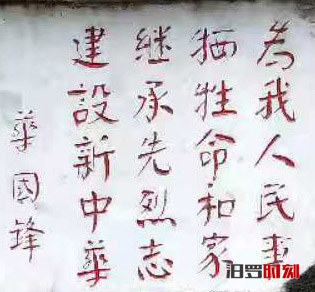 為我人民事
牺牲命和家
継承先烈志
建設新中華
華國鋒
汨罗时刻